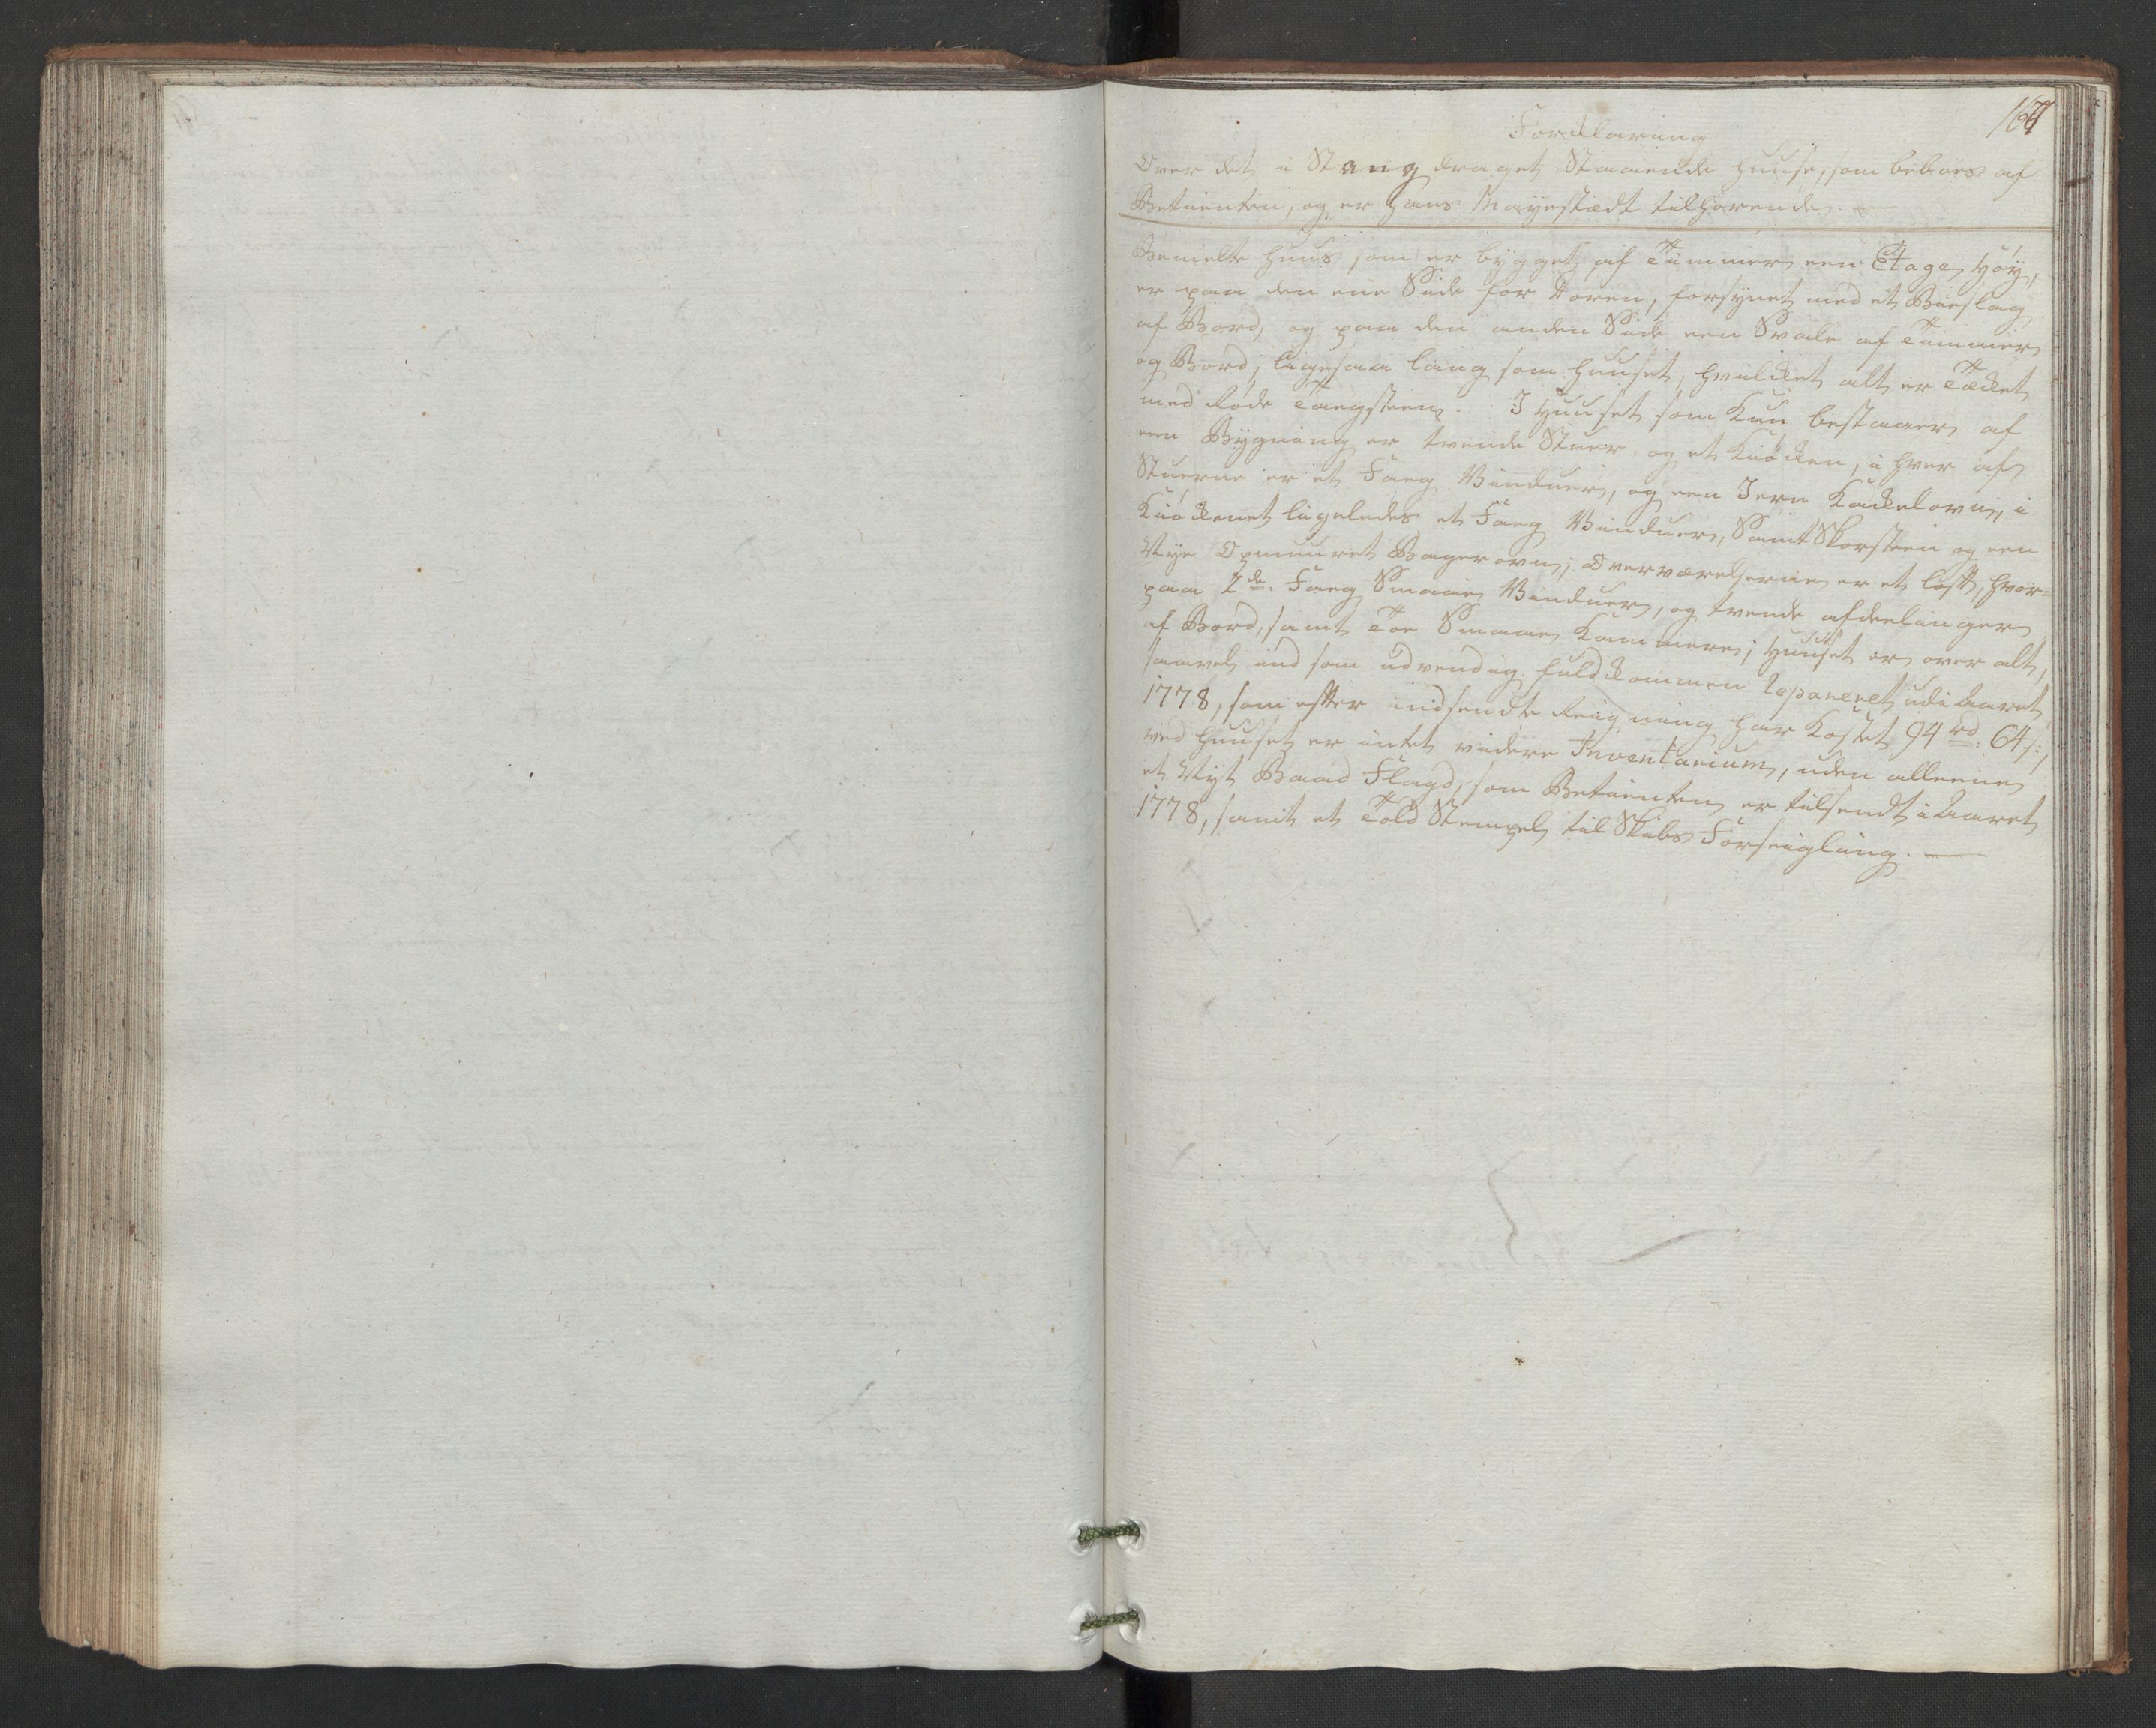 167
Forcklaring
Over det i Stangdraget Staaende Huuse, som beboes af
Betienten, og er hans Mayestædt tilhørende.
Bemelte huus som er bygget af Timmer een Etage Høy,
er paa den ene Side for Doren, forsynet med et Bieslag
af Bord, og paa den anden Side een Svale af Timmer
og Bord, ligesaa lang som huuset, hvilcket alt er Tæcket
med Røde Taegsteen. I Huuset som Kun bestaaer af
een Bygning er tvende Stuer og et Kiøcken, i hver af
Stuerne er et Faeg Vinduer, og een Jern Kackelovn, i
Kiøckenet ligeledes et Faeg Vinduer, Samt Skorsteen og een
Nye Opmuuret Bagerovn; Overværelserne er et loft, hvor=
paa 2de Faeg Smaae Vinduer, og tvende afdeelinger
af Bord, samt Toe Smaae Kammere; Huuset er over alt,
saavel ind som udvendig fuldkommen Repareret udi Aaret
1778, som efter indsendte Reigning har Kostet 94 rd: 64 s:,
ved huuset er intet videre Inventarium, uden alleene
et Nyt Baad Flagd, som Betienten er tilsendt i Aaret
1778, samt et Told Stempel til Skibs Forseigling.